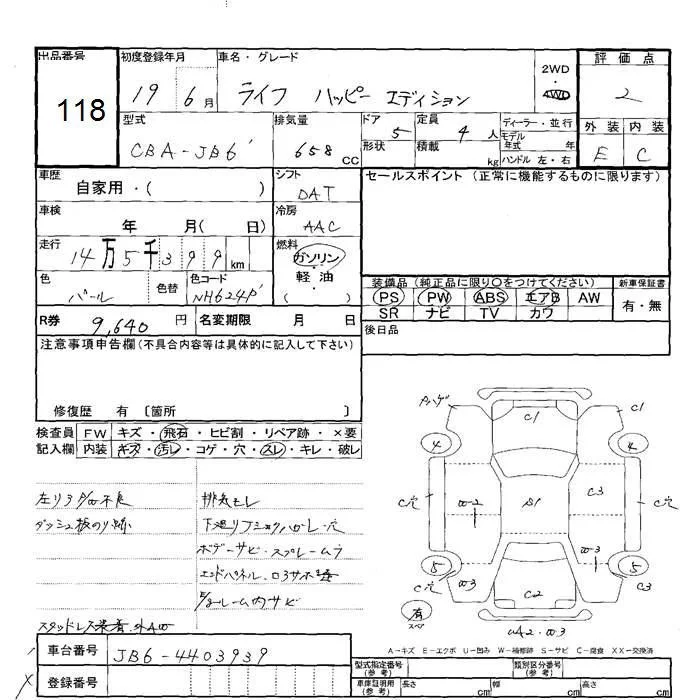 出品番号
118
初度登録年月
19 6月
車名・グレード
ライフ ハッピー エディション
2WD
4WD
評価点
2
型式
CBA-JB6
排気量
658 CC
ドア 5
形状
定員 4 人
積載 kg
ディーラー・並行
モデル年式 年
ハンドル 左・右
外装 内装
E C
車歴
自家用・( )
シフト
DAT
セールスポイント (正常に機能するものに限ります)
車検
年 月( 日)
冷房
AAC
走行
14万5千399km
燃料
ガソリン
軽・油
( )
色
パール
色替
色コード
NH624P
装備品 (純正品に限り○をつけてください)
新車保証書
PS PW ABS エアB AW
SR ナビ TV カワ
有・無
R券 9,640 円
名変期限 月 日
後日品
注意事項申告欄(不具合内容等は具体的に記入して下さい)
修復歴 有 〔箇所 〕
検査員記入欄
FW キズ・飛石・ヒビ割・リペア跡・×要
内装 キズ・汚レ・コゲ・穴・スレ・キレ・破レ
左リヤP/W不良
ダッシュ板のり跡
排気モレ
ボデーサビ・スプレームラ
スタッドレス装着
C1
C1
4
4
C穴
W-2
B1
C3
C穴
W-3
5
5
C穴
W3
C2
C3
有
スペア
UA2・W3
A-キズ E-エクボ U-凹み W-補修跡 S-サビ C-腐食 XX-交換済
車台番号
JB6-4403939
登録番号
型式指定番号(参考)
類別区分番号(参考)
車庫証明用(参考)
長さ cm
幅 cm
高さ cm